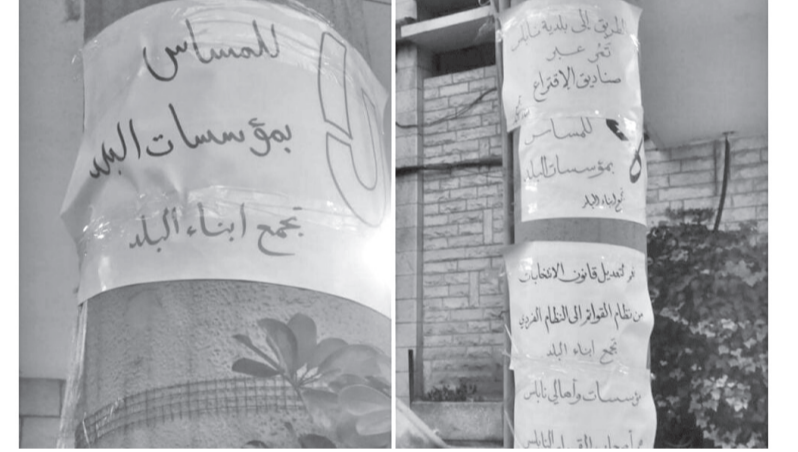 لا
للمساس
بمؤسسات البلد
تجمع ابناء البلد
الطريق إلى بلدية نابلس
تمر عبر
صناديق الإقتراع
لا
للمساس
بمؤسسات البلد
تجمع ابناء البلد
لتعديل قانون الانتخابات
من نظام القوائم الى النظام الفردي
تجمع ابناء البلد
مؤسسات وأهالي نابلس